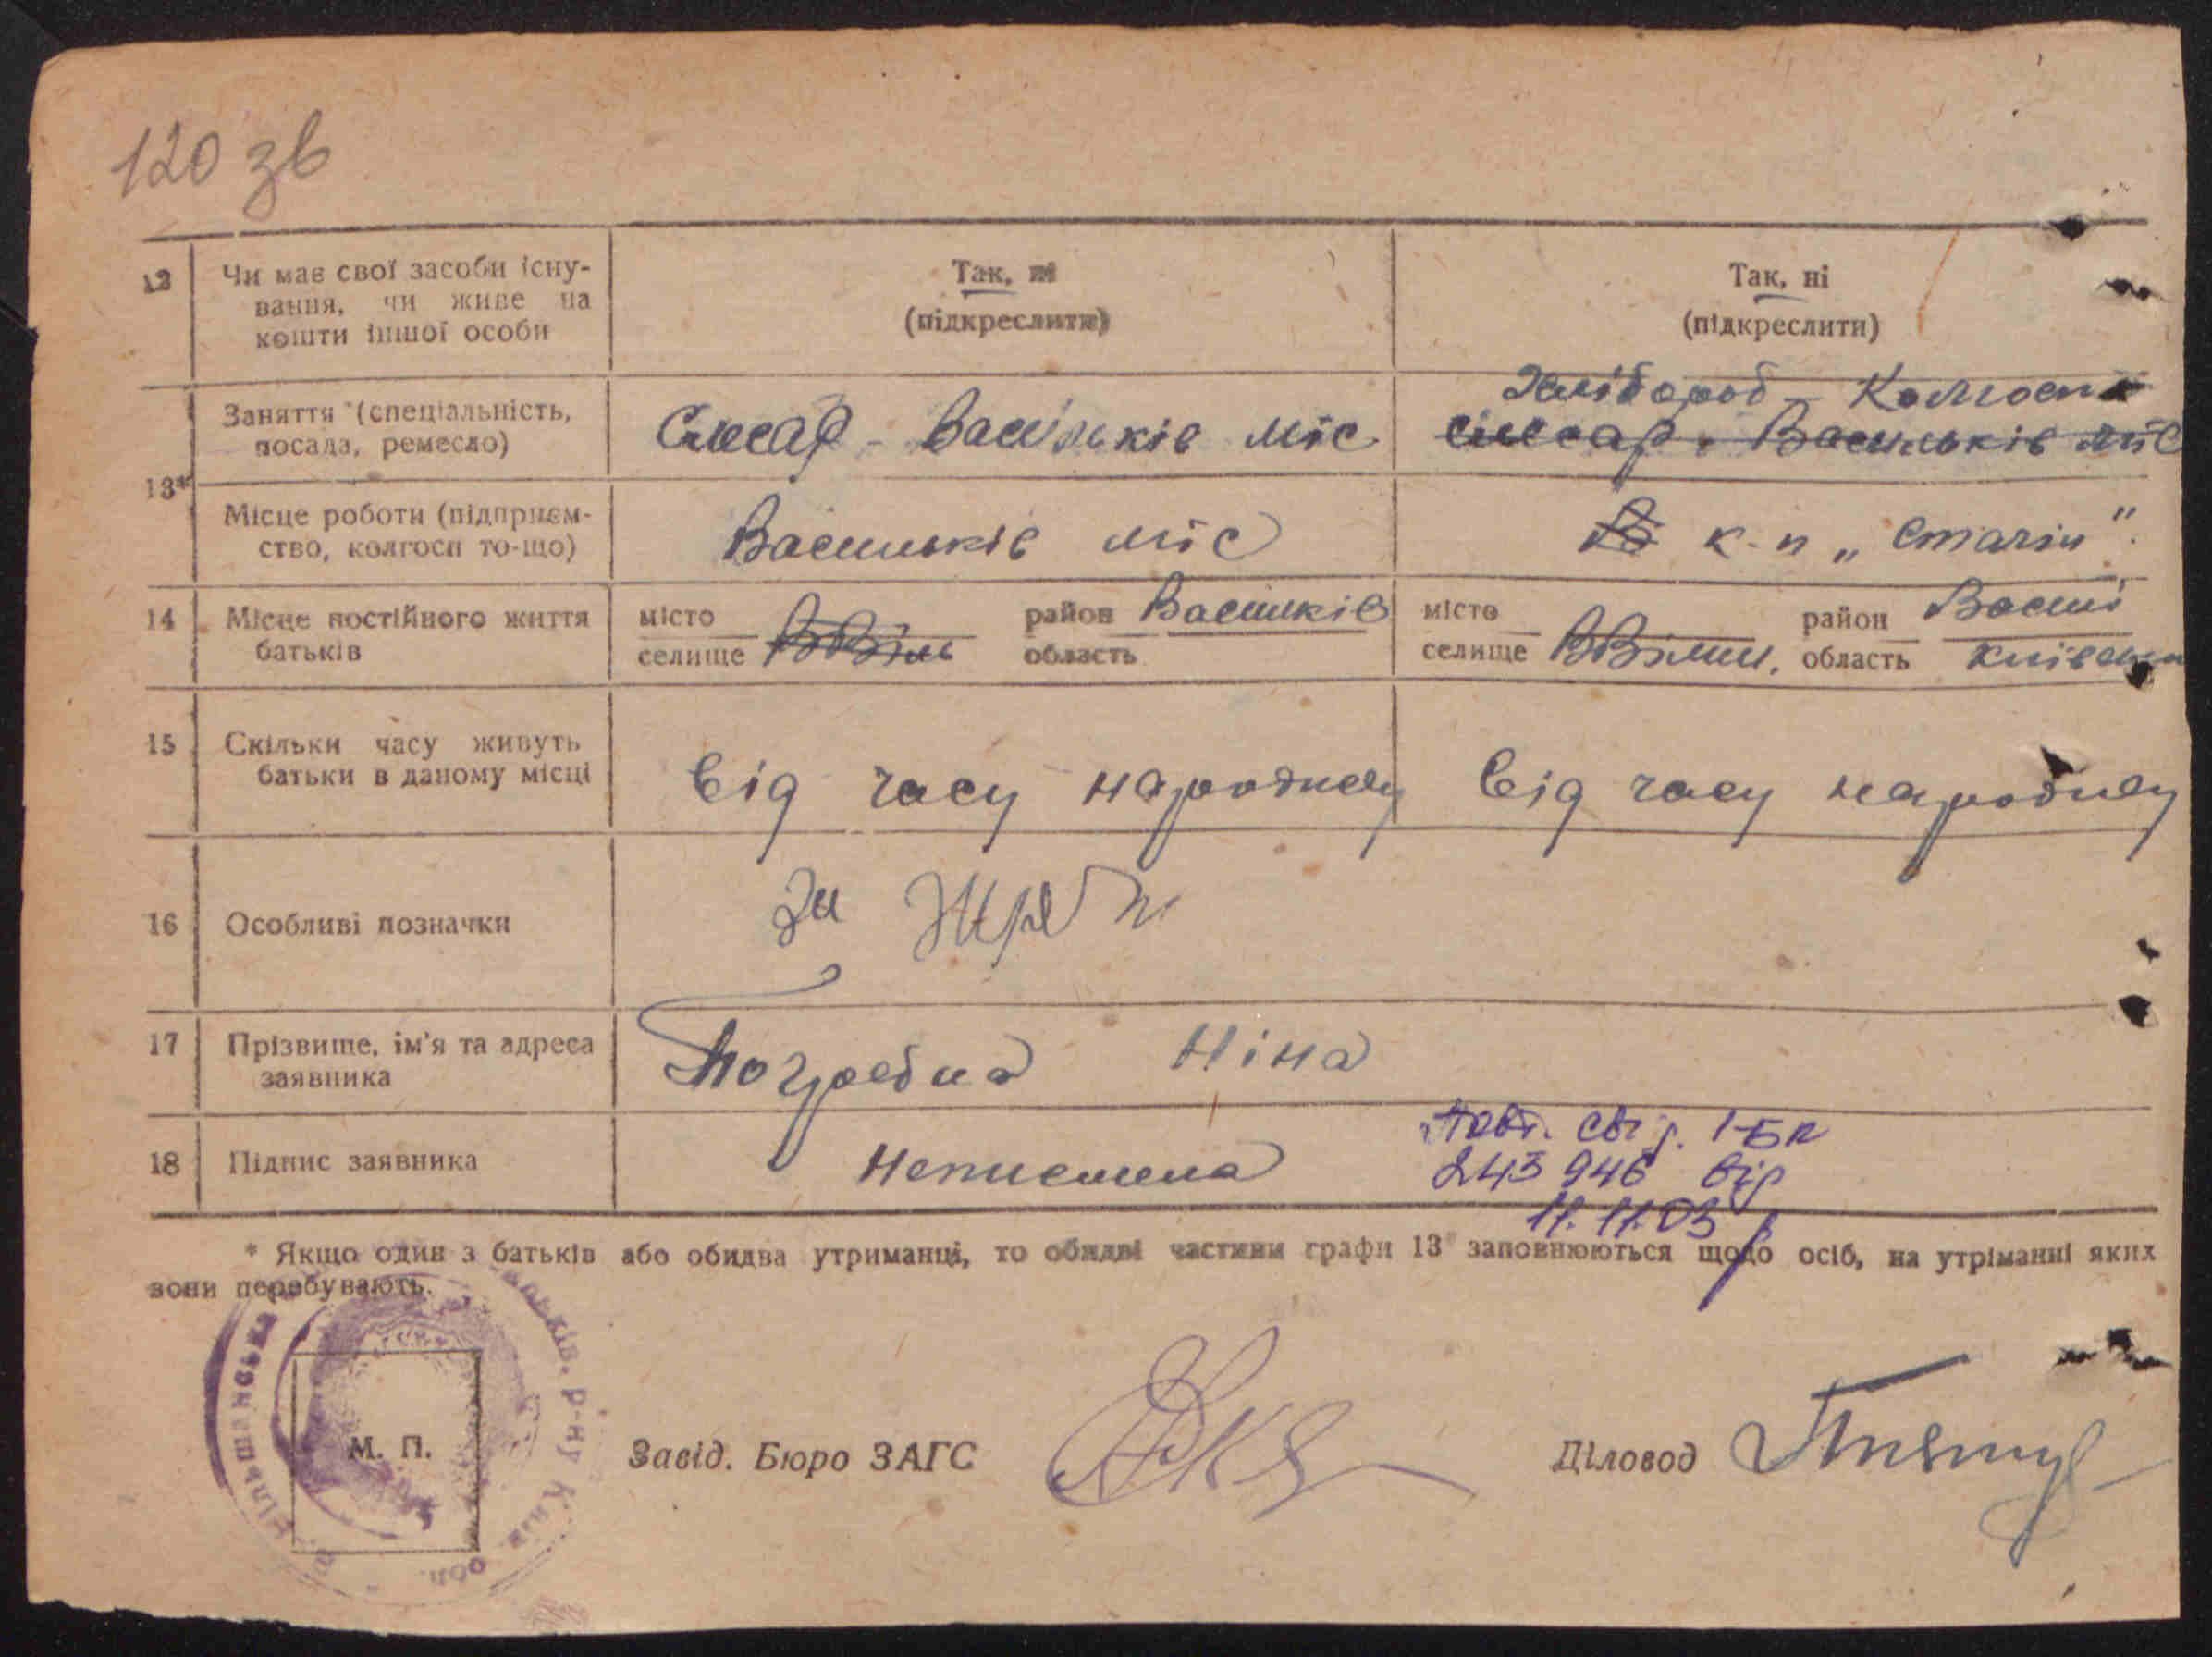 120 зв
12 Чи має свої засоби існу-
вання, чи живе на
кошти іншої особи
Так, ні
(підкреслити)
Так, ні
(підкреслити)
13*
Заняття (спеціальність,
посада, ремесло)
Слюсар - Васильків міс
Хлібороб - Колгосп
слюсар. Васильків міс
Місце роботи (підприєм-
ство, колгосп то-що)
Васильків міс
В к-п „Сталін".
14 Місце постійного життя
батьків
місто
селище ВВіль
район Васильків
область
місто
селище ВВільш.
район Васи
область Київська
15 Скільки часу живуть
батьки в даному місці
Від часу народжен
Від часу народжен
16 Особливі позначки
17 Прізвище, ім'я та адреса
заявника
Погребна Ніна
18 Підпис заявника
Неписьмена
Повт. свід. 1-БК
243946 від
11.11.03 р
* Якщо один з батьків або обидва утриманці, то обидві частини графи 13 заповнюються щодо осіб, на утріманні яких
вони перебувають.
М. П.
Р-ну Київ обл.
Завід. Бюро ЗАГС
Діловод